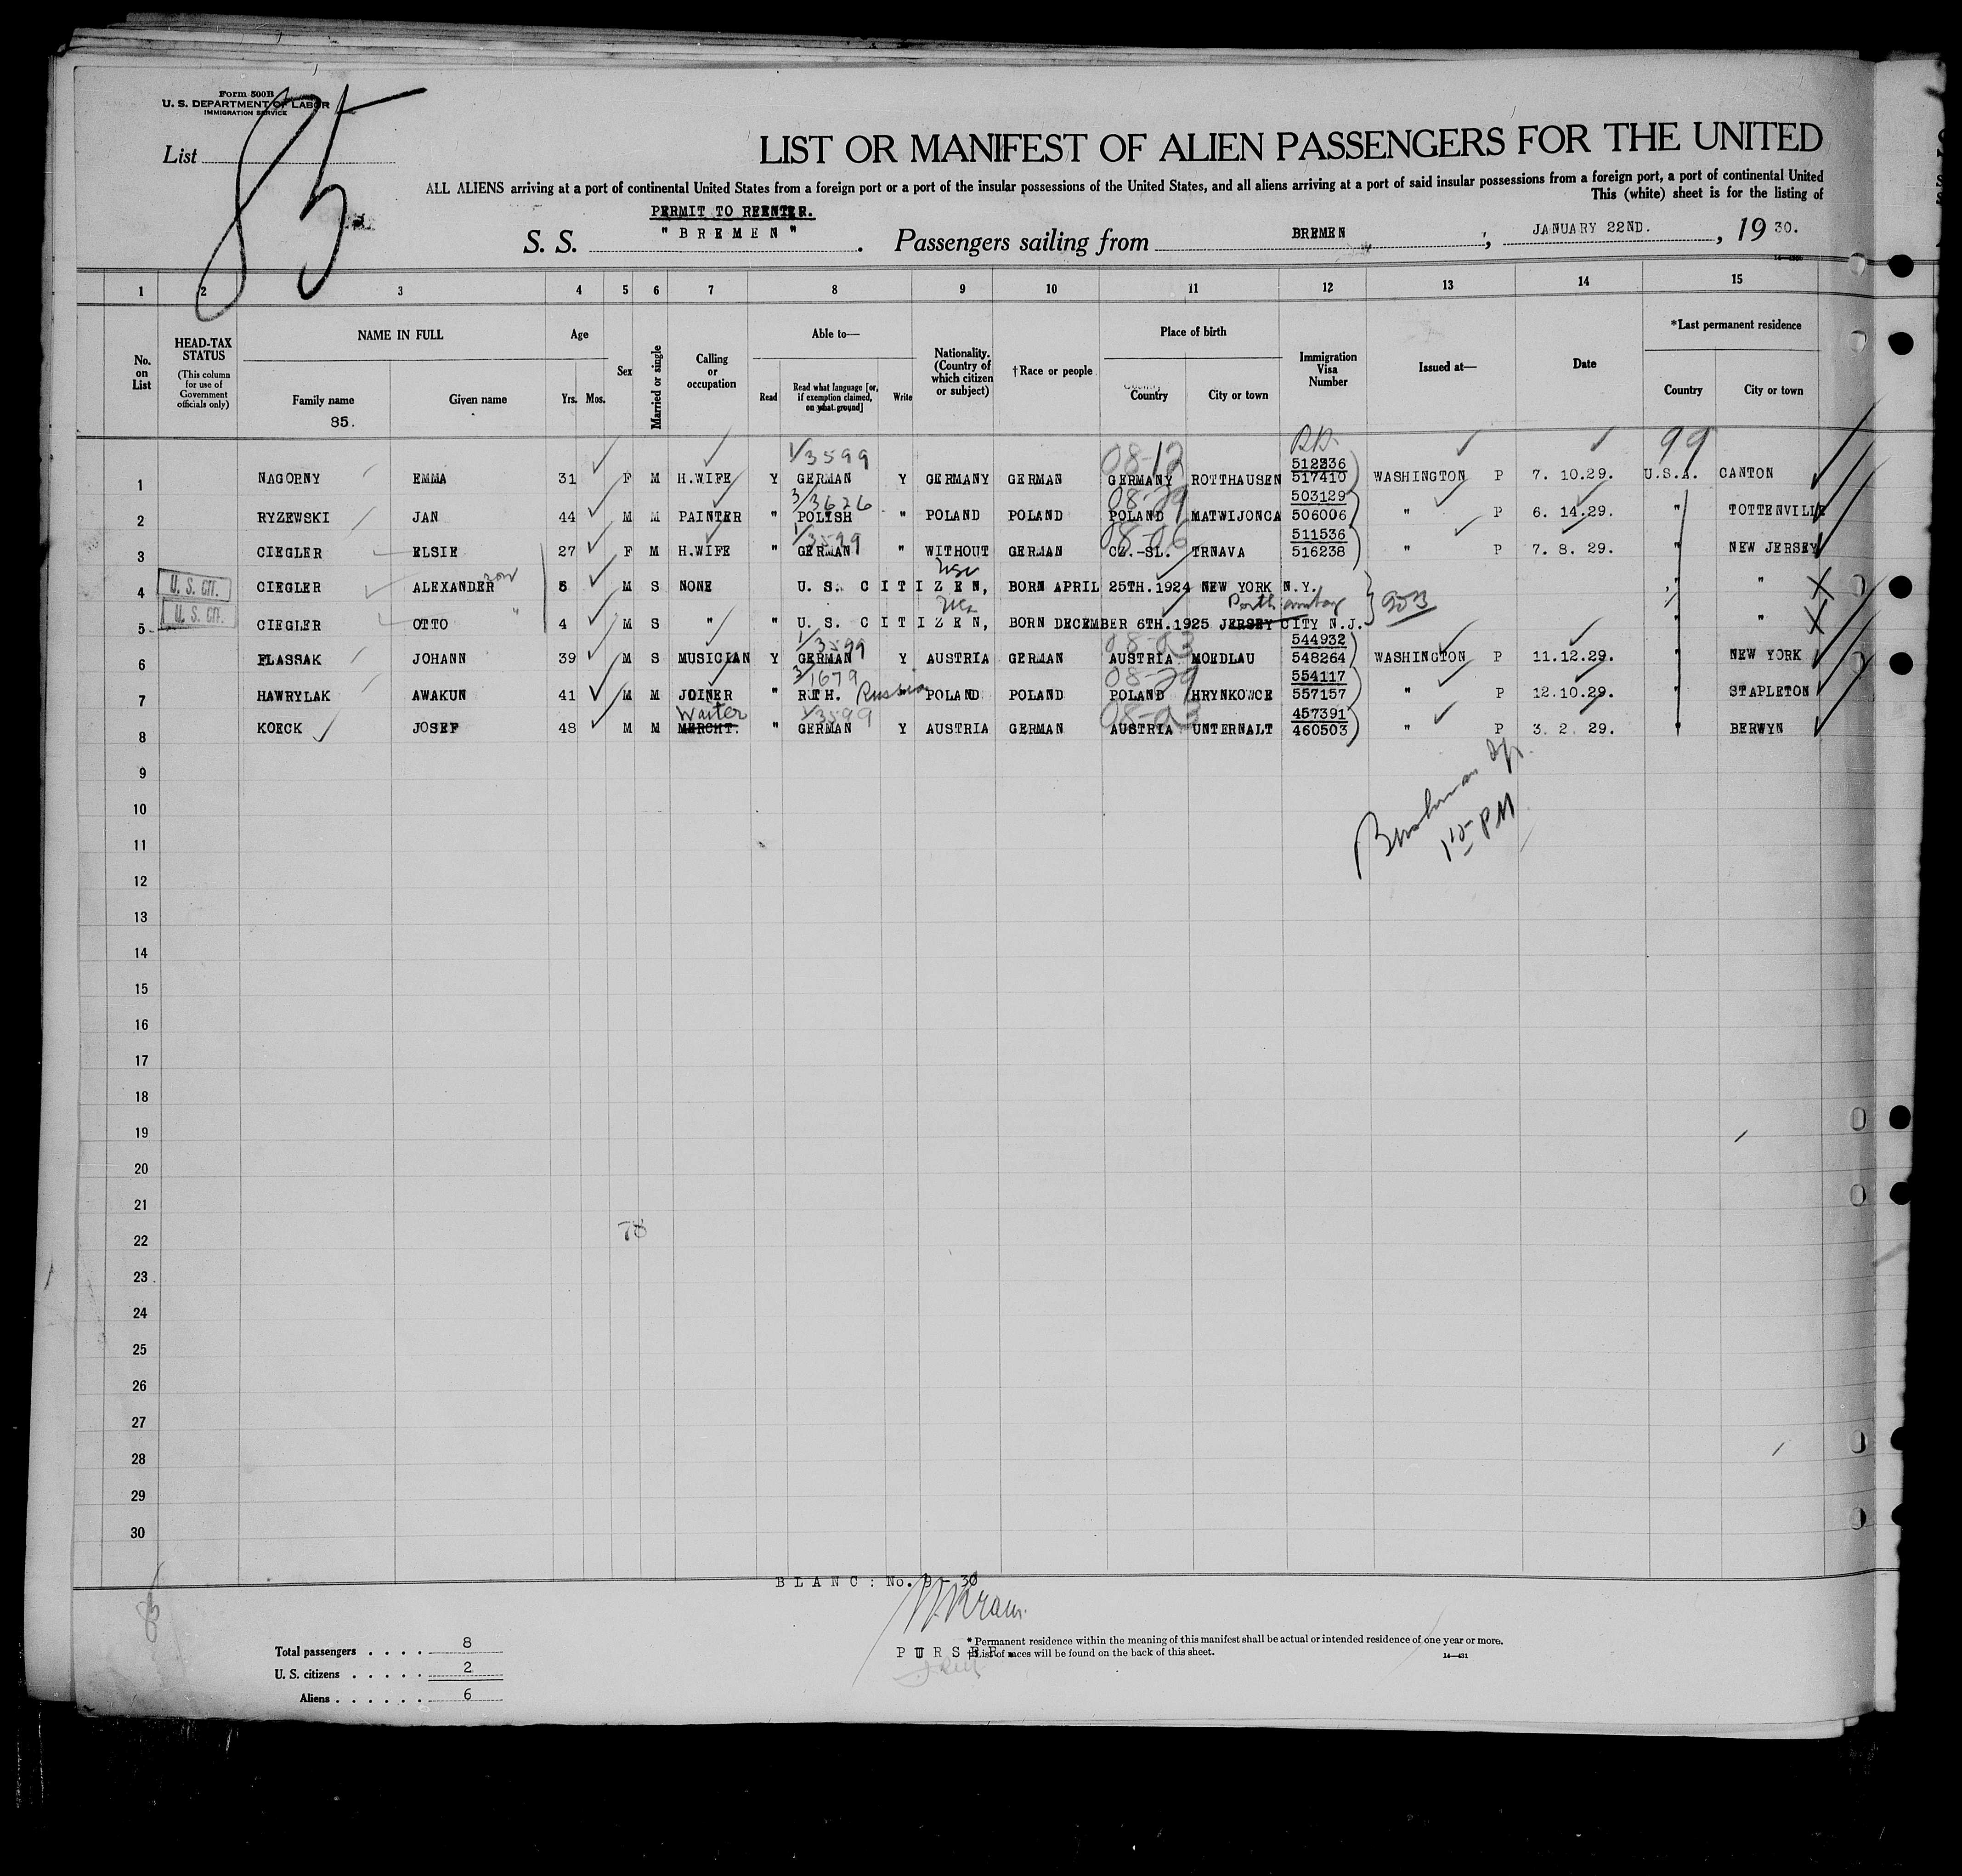 Form 500B
U. S. DEPARTMENT OF LABOR
IMMIGRATION SERVICE
List
85
LIST OR MANIFEST OF ALIEN PASSENGERS FOR THE UNITED
ALL ALIENS arriving at a port of continental United States from a foreign port or a port of the insular possessions of the United States, and all aliens arriving at a port of said insular possessions from a foreign port, a port of continental United
This (white) sheet is for the listing of
PERMIT TO REENTER.
S. S. "BREMEN". Passengers sailing from BREMEN, JANUARY 22ND., 19 30.
1 2 3 4 5 6 7 8 9 10 11 12 13 14 15
No. on List
HEAD-TAX STATUS
(This column for use of Government officials only)
NAME IN FULL
Family name
85.
Given name
Age
Yrs. Mos.
Sex
Married or single
Calling or occupation
Able to—
Read
Read what language [or, if exemption claimed, on what ground]
Write
Nationality. (Country of which citizen or subject)
†Race or people
Place of birth
Country
City or town
Immigration Visa Number
Issued at—
Date
*Last permanent residence
Country
City or town
1/3599 08-12 99
1 NAGORNY EMMA 31 F M H.WIFE Y GERMAN Y GERMANY GERMAN GERMANY ROTTHAUSEN 512236 517410 WASHINGTON P 7. 10.29. U.S.A. CANTON
3/3626 08-29
2 RYZEWSKI JAN 44 M M PAINTER " POLISH " POLAND POLAND POLAND MATWIJONCA 503129 506006 " P 6. 14.29. " TOTTENVILLE
1/3599 08-06
3 CIEGLER ELSIE 27 F M H.WIFE " GERMAN " WITHOUT GERMAN CZ.-SL. TRNAVA 511536 516238 " P 7. 8. 29. " NEW JERSEY
U. S. CIT.
4 CIEGLER ALEXANDER son 5 M S NONE U. S. CITIZEN, BORN APRIL 25TH.1924 NEW YORK N.Y. " "
U. S. CIT.
Perth Amboy
5 CIEGLER OTTO " 4 M S " U. S. CITIZEN, BORN DECEMBER 6TH.1925 JERSEY CITY N.J. " "
1/3599 08-03
6 FLASSAK JOHANN 39 M S MUSICIAN Y GERMAN Y AUSTRIA GERMAN AUSTRIA MOEDLAU 544932 548264 WASHINGTON P 11.12.29. " NEW YORK
3/1679 08-29
7 HAWRYLAK AWAKUN 41 M M JOINER " RTH. Russian POLAND POLAND POLAND HRYNKOWCE 554117 557157 " P 12.10.29. " STAPLETON
Waiter 1/3599 08-03
8 KOECK JOSEF 48 M M MERCHT. " GERMAN Y AUSTRIA GERMAN AUSTRIA UNTERNALT 457391 460503 " P 3. 2. 29. " BERWYN
9
10
11
12
13
14
15
16
17
18
19
20
21
78
22
23
24
25
26
27
28
29
30
BLANC: No. 9 - 30
PURSER.
Total passengers . . . . 8
U. S. citizens . . . . . 2
Aliens . . . . . . 6
* Permanent residence within the meaning of this manifest shall be actual or intended residence of one year or more.
†List of races will be found on the back of this sheet.
14—431